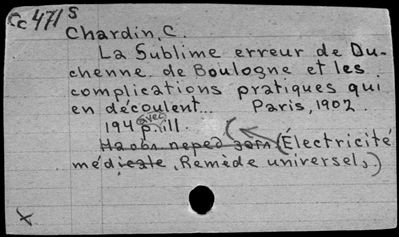 Cc 471 S
Chardin, C.
La Sublime erreur de Du-
chenne de Boulogne et les
complications pratiques qui
en découlent.. Paris, 1902.
194 p. avec ill.
(Électricité
médicale, Remède universel,)